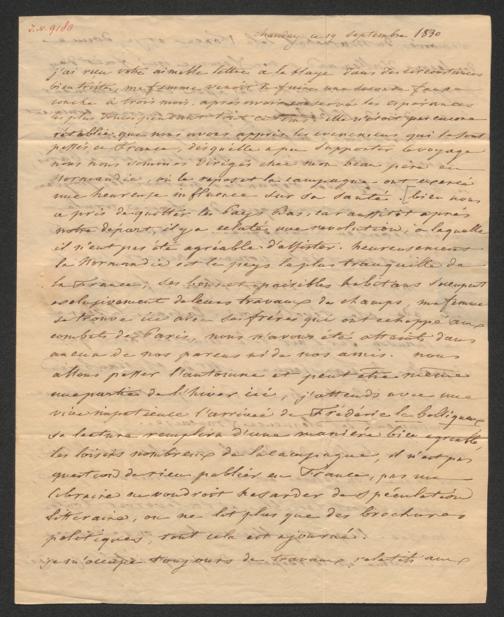 J.N. 9180
ce 19 septembre 1830
j'ai reçu votre aimable lettre à la Haye dans des circonstances
bien tristes, ma femme venoit de faire une seconde fausse
couche à trois mois, après avoir conservé les espérances
les plus elle n'étoit pas encore
rétablie, que nous avons appris les évenemens qui se sont
passés en France, dès qu'elle a pu supporter le voyage
nous nous sommes dirigés chez mon beau père en
Normandie, où le repos et la campagne ont exercé
une heureuse influence sur sa santé. bien nous
a pris de quitter les Pays Bas, car aussitot apres
notre départ, il y a eclaté une revolution, à laquelle
il n'eut pas été agréable d'assister. heureusement
la Normandie est le pays le plus tranquille de
la France, ses bons et paisibles habitans s'occupent
exclusivement de leurs travaux de champs, ma femme
se trouve ici avec ses frères qui ont echappé aux
combats de Paris, nous n'avons été atteints dans
aucun de nos parens ni de nos amis. nous
allons passer l'automne et peut etre même
une partie de l'hiver ici, j'attends avec une
vive impatience l'arrivée de Frédéric le belliqueux
sa lecture remplira d'une manière bien agréable
les loisirs nombreux de la campagne, il n'est pas
question de rien publier en France, pas un
libraire ne voudroit hasarder de spéculation
littéraire, on ne lit plus que des brochures
politiques, tout cela est ajourné.
je m'occupe toujours de travaux relatifs aux